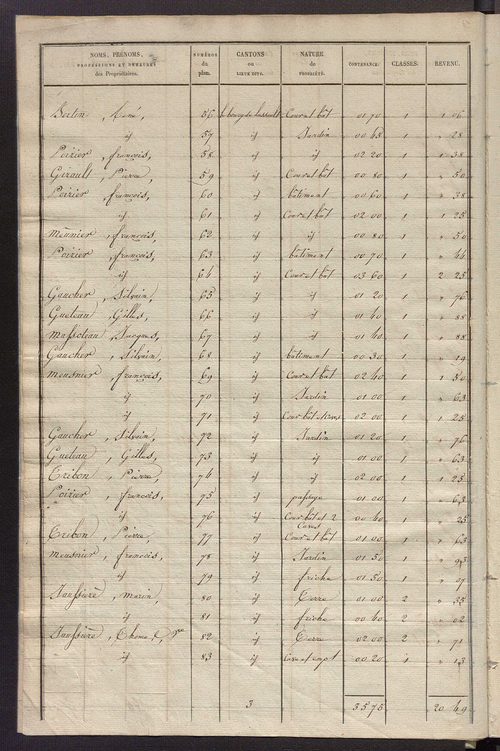 NOMS, PRÉNOMS, PROFESSIONS ET DEMEURES des Propriétaires. NUMÉROS du plan. CANTONS ou LIEUX DITS. NATURE de PROPRIÉTÉ. CONTENANCE. CLASSES. REVENU.
Bertin, René, 56 le bourg de Cour et bât 01 70 1 1 06
id 57 id Jardin 00 45 1 " 28
Poirier, françois, 58 id id 02 20 1 1 38
Girault, Pierre, 59 id Cour et bât 00 80 1 " 50
Poirier, françois, 60 id bâtiment 00 60 1 " 38
id 61 id Cour et bât 02 00 1 1 25
meunier, françois, 62 id id 00 80 1 " 50
Poirier, françois, 63 id bâtiment 00 70 1 " 44
id 64 id Cour et bât 03 60 1 2 25
Gaucher, Silvain, 65 id id 01 20 1 " 76
Gueteau, Gilles, 66 id id 01 40 1 " 88
Jacques, 67 id id 01 40 1 " 88
Gaucher, Silvain, 68 id bâtiment 00 30 1 " 19
meusnier, françois, 69 id Cour et bât 02 40 1 1 50
id 70 id Jardin 01 00 1 " 63
id 71 id Cour bât 02 00 1 1 25
Gaucher, Silvain, 72 id Jardin 01 20 1 " 76
Gueteau, Gilles, 73 id id 01 00 1 " 63
Tribon, Pierre, 74 id id 02 00 1 1 25
Poirier, françois, 75 id passage 01 00 1 " 63
id 76 id Cour bât et 2 Caves 00 40 1 " 25
Tribon, Pierre, 77 id Cour et bât 01 00 1 " 63
meusnier, françois, 78 id Jardin 01 50 1 " 93
id 79 id friche 01 50 1 " 07
marin, 80 id Terre 01 00 2 " 35
id 81 id friche 00 60 2 " 02
82 id Terre 02 00 2 " 71
id 83 id Cave et 00 20 1 " 13
3 3575 20 69